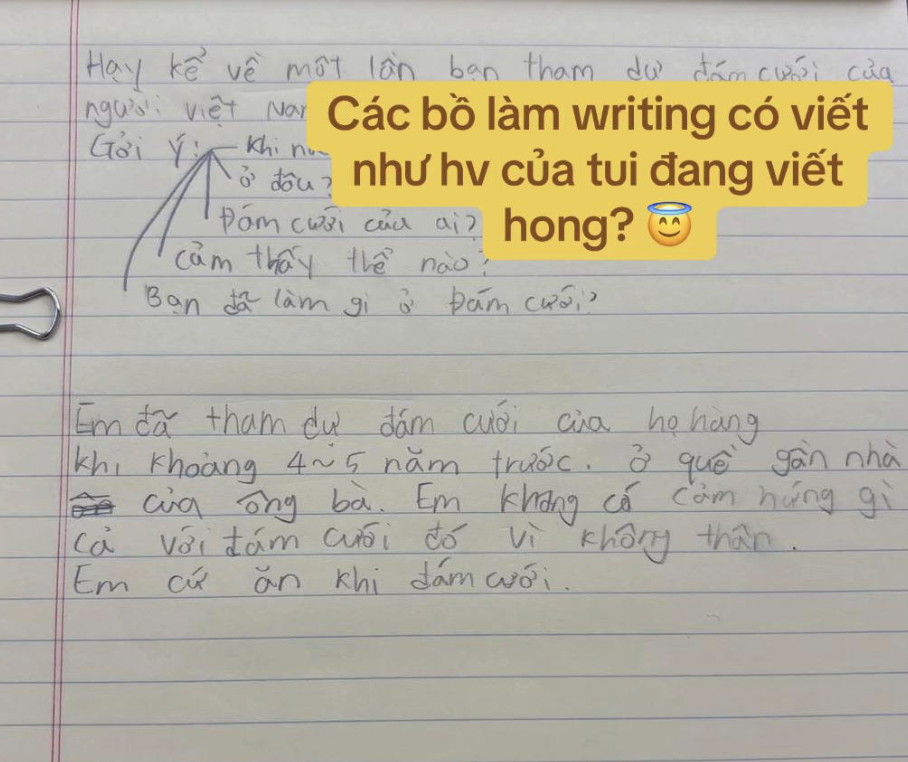 Hạy kể về một lần bạn tham dự đám cưới của
người việt Nam
Các bồ làm writing có viết
như hv của tui đang viết
hong? 😇
Gởi ý: Khi
ở đâu?
Đám cưới của ai?
cảm thấy thế nào?
Bạn đã làm gì ở Đám cưới?
Em đã tham dự đám cưới của họ hàng
khi khoảng 4~5 năm trước. ở quê gần nhà
của ông bà. Em không có cảm hứng gì
cả với đám cưới đó vì không thân.
Em cứ ăn khi đám cưới.